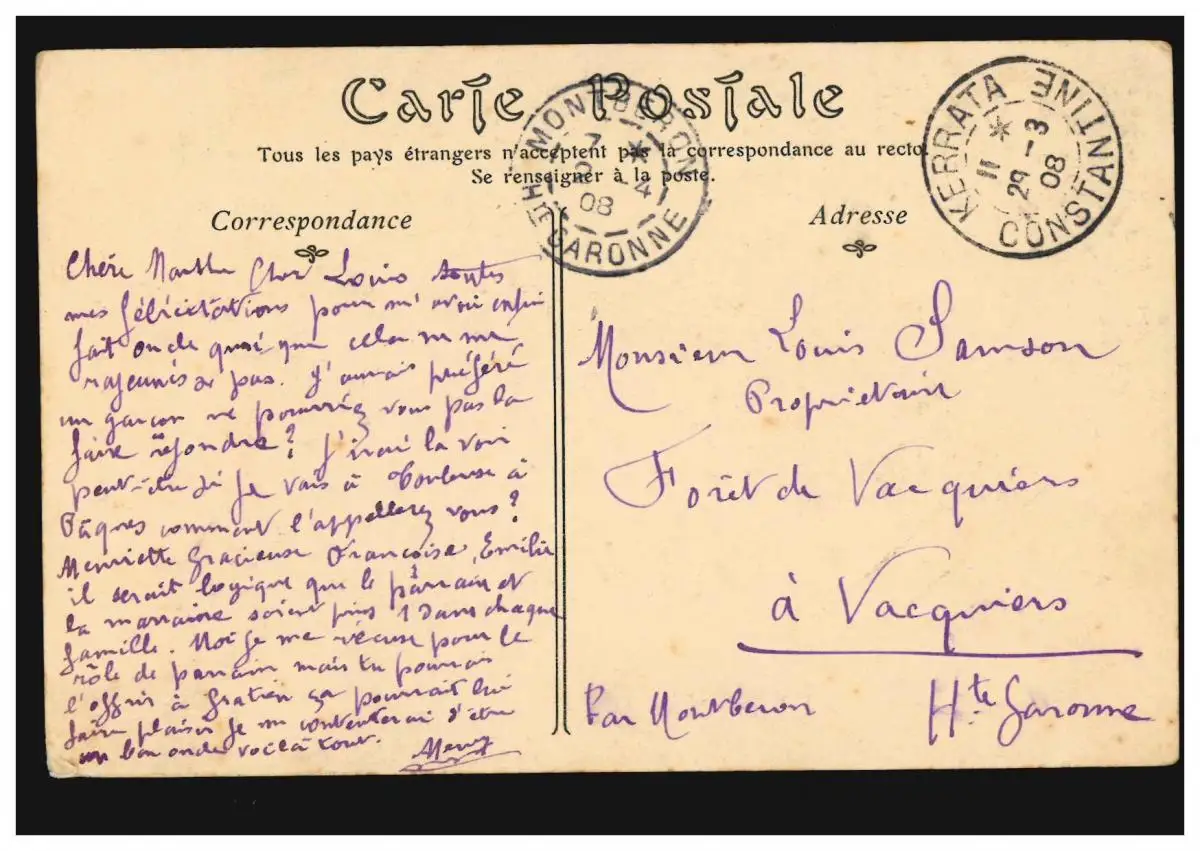 Carte Postale
Tous les pays étrangers n'acceptent pas la correspondance au recto
Se renseigner à la poste.
Correspondance
Chère Marthe Cher Louis toutes
mes félicitations pour m'avoir enfin
fait oncle quoi que cela ne me
rajeunisse pas. J'aurais préféré
un garçon ne pourriez vous pas la
faire refondre? J'irai la voir
peut-être si je vais à Toulouse à
Pâques comment l'appellerez vous?
Henriette Gracieuse Françoise, Emilie
il serait logique que le parrain et
la marraine soient pris 1 dans chaque
famille. Moi je me récuse pour le
rôle de parrain mais tu pourrais
l'offrir à Gratien ça pourrait lui
faire plaisir je me contenterai d'être
un bon oncle voilà tout.
Adresse
Monsieur Louis Samson
Propriétaire
Forêt de Vacquiers
à Vacquiers
Par Montberon Hte Garonne
MONTBERON
7 *
2 -4
08
HTE GARONNE
KERRATA
11 *
29 -3
08
CONSTANTINE